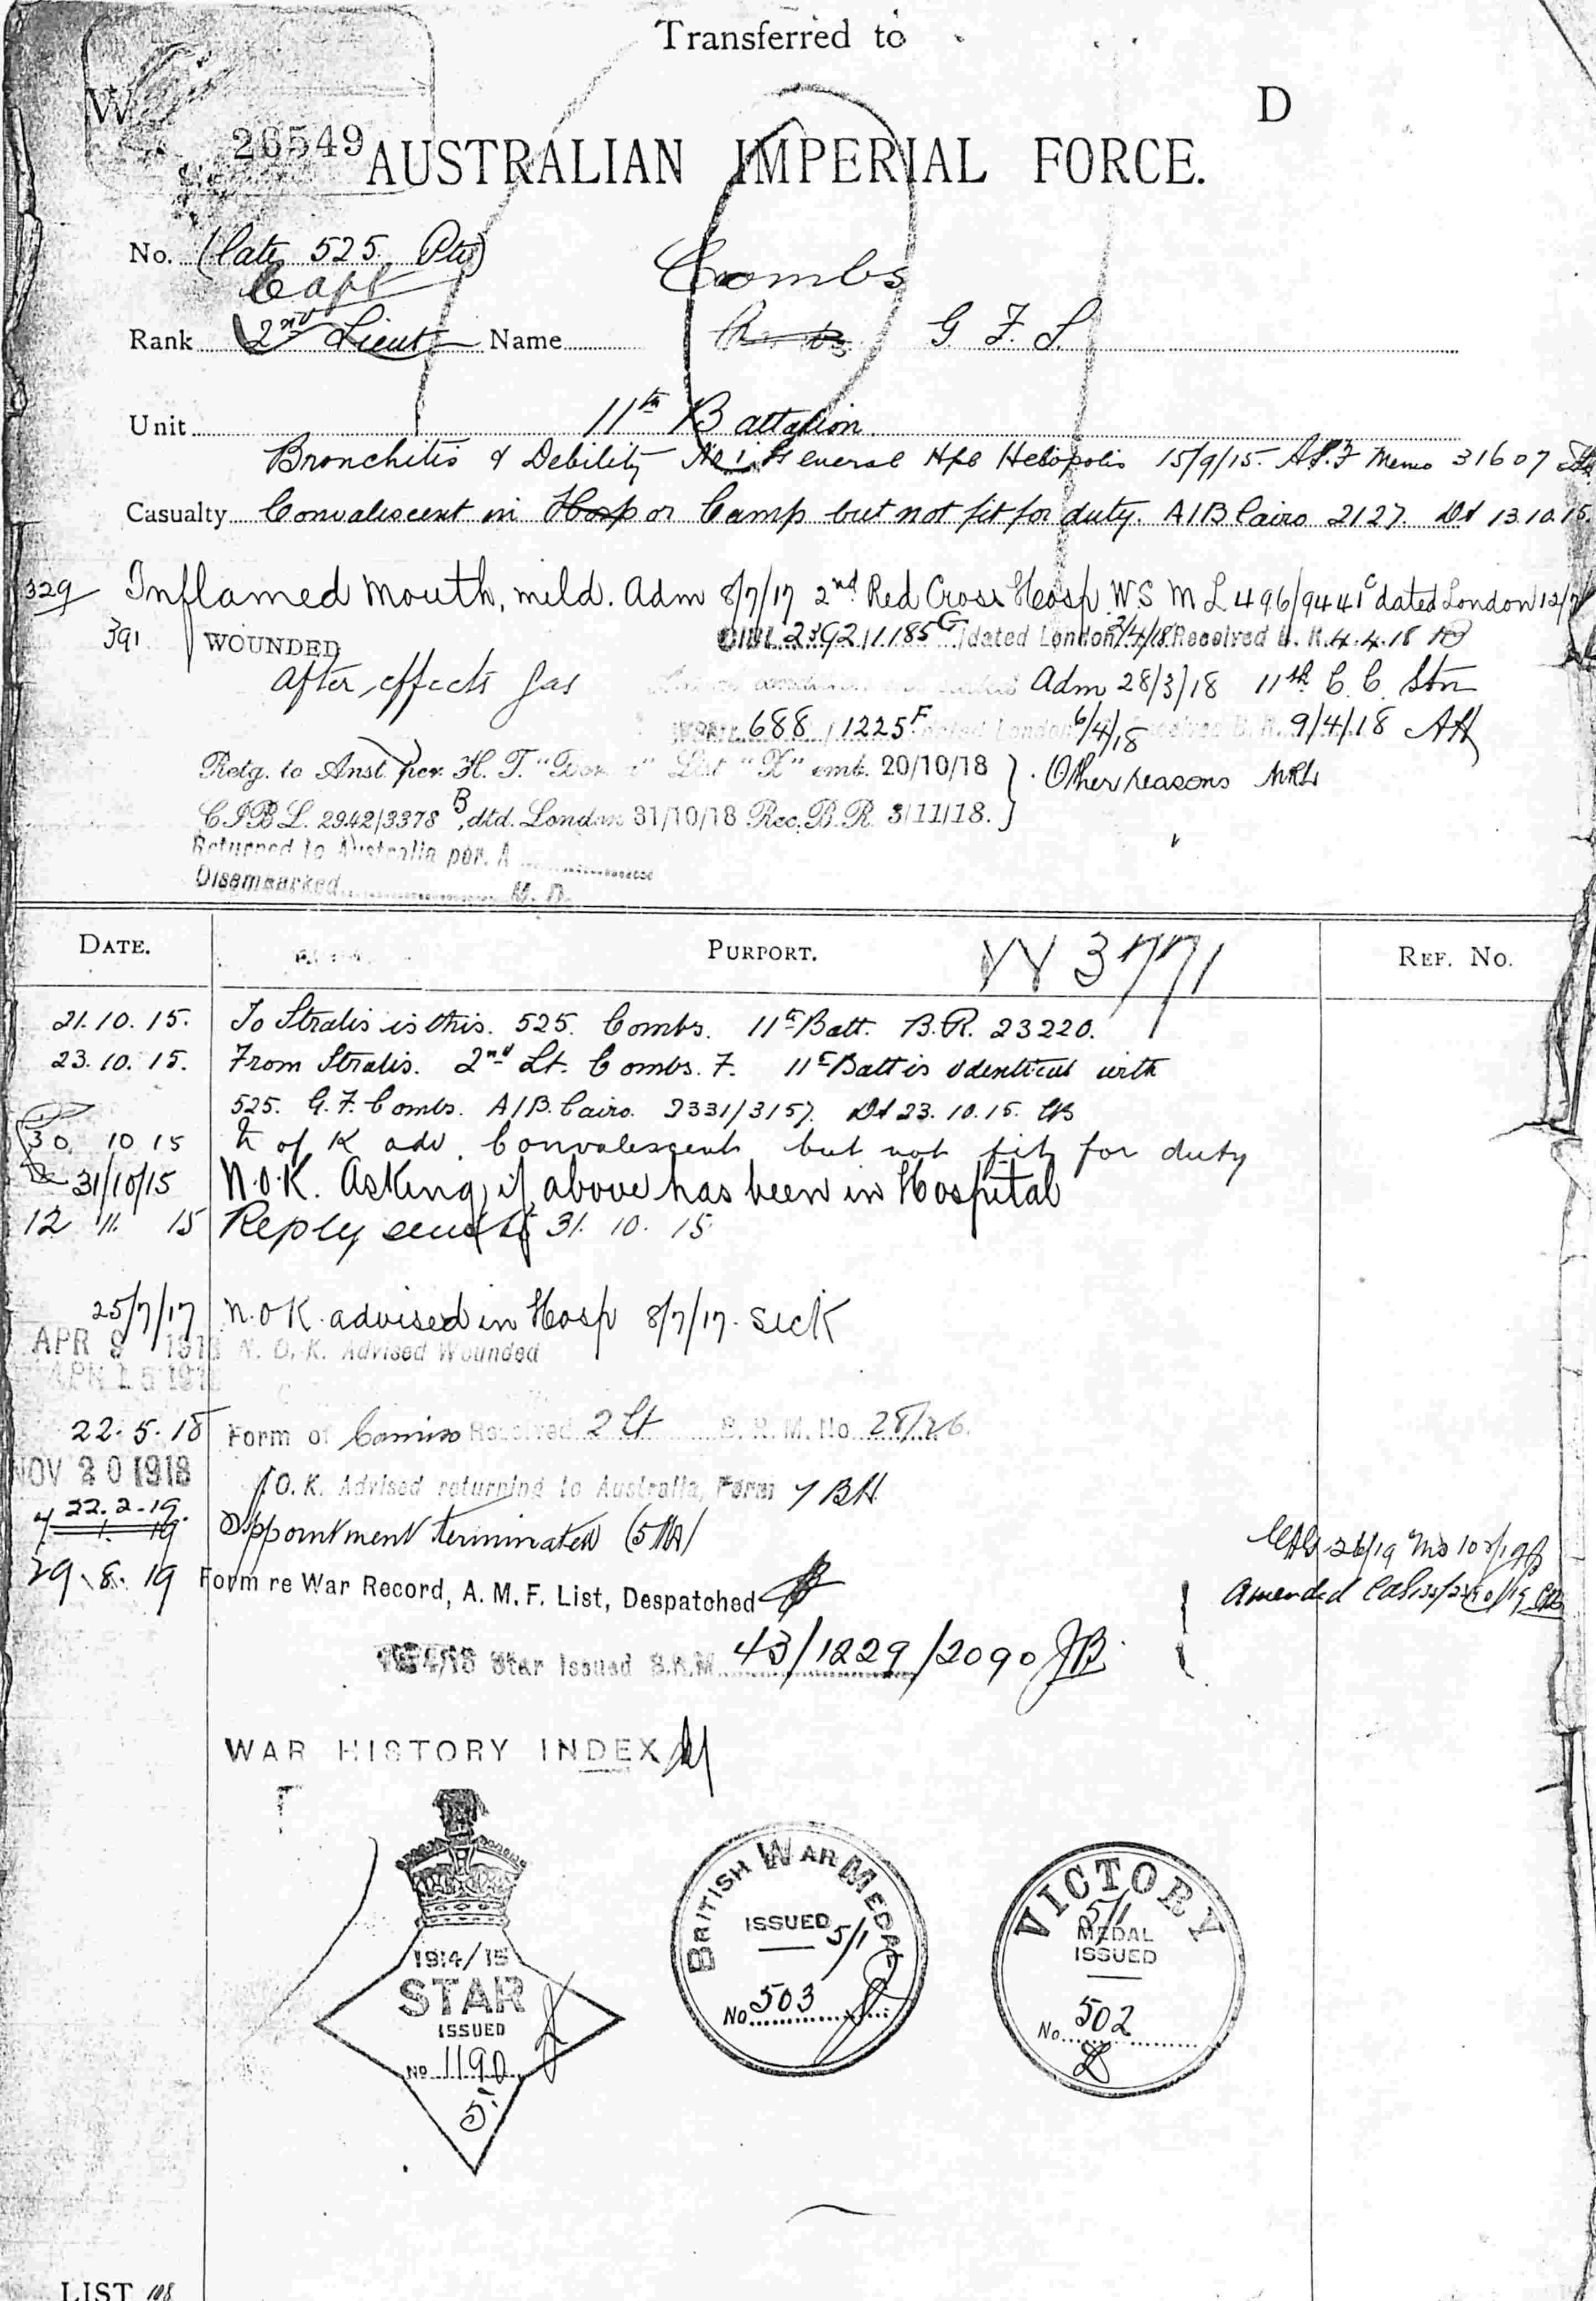 Transferred to
W
D
26549
AUSTRALIAN IMPERIAL FORCE.
No. (late 525 Pte)
Capt
Combs
Rank 2nd Lieut Name G F S
Unit 11th Battalion
Bronchitis & Debility No 1 General Hpl Heliopolis 15/9/15. Memo 31607
Casualty Convalescent in Hosp or Camp but not fit for duty. A/B Cairo 2127. Dd 13.10.15.
329 Inflamed mouth, mild. Adm 8/7/17 2nd Red Cross Hosp W S M L 496/9441 c dated London 12/7
391 WOUNDED 2392/1.185 G dated London 3/4/18 Received B. R. 4.4.18
After effects Gas Adm 28/3/18 11th C. C. Stn
688 / 1225 F dated London 6/4/18 Received B. R. 9/4/18 AH
Retg. to Aust. per H. T. List "X" emb. 20/10/18 } Other reasons
C I B L. 2942/3378 B, dtd. London 31/10/18 Rec. B. R. 3/11/18.
Returned to Australia per. A
Disembarked M. D.
DATE. PURPORT. W 3771 REF. No.
21. 10. 15. To Stralis is this. 525. Combs. 11th Batt. B. R. 23220.
23. 10. 15. From Stralis. 2nd Lt. Combs. F. 11th Batt is identical with
525. G. F. Combs. A/B. Cairo. 2331/3157. Dd 23. 10. 15.
30 10 15 N of K adv. Convalescent but not fit for duty
31/10/15 N.O.K. Asking if above has been in Hospital
12 11. 15 Reply sent 31. 10. 15
25/7/17 N.O.K. advised in Hosp 8/7/17. Sick
APR 9 1918 N. O. K. Advised Wounded
APR 15 191
22. 5. 18 Form of Received 2 Lt B. R. M. No. 28/26.
NOV 20 1918 O. K. Advised returning to Australia, Form 7 BH
22. 2. 19.
7 1. 19 Appointment terminated (5 MD)
29. 8. 19 Form re War Record, A. M. F. List, Despatched
Amended
Star Issued B.R.M. 43/1229/2090 JB
WAR HISTORY INDEX
1914/15
STAR
ISSUED
No 1190
5
BRITISH WAR MEDAL
ISSUED 5/1
No 503
VICTORY
5/1
MEDAL
ISSUED
No. 502
LIST 108